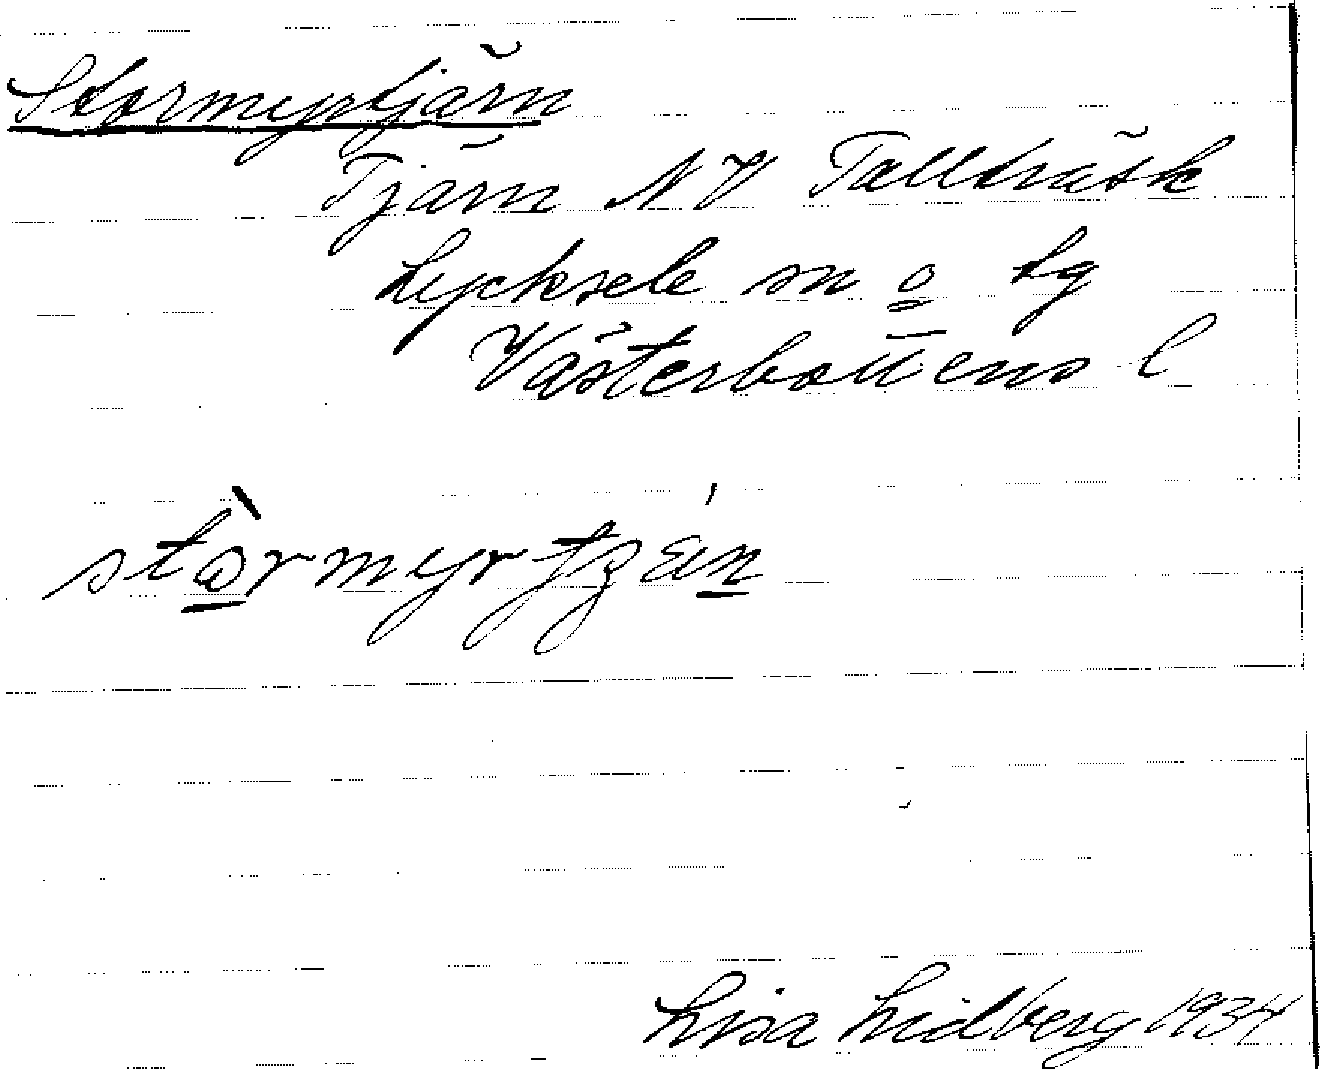 Stormyrtjärn
Tjärn NV Tallträsk
Lycksele sn o lg
Västerbottens l
stòrmyrtjǽn
Lisa Lidberg 1934